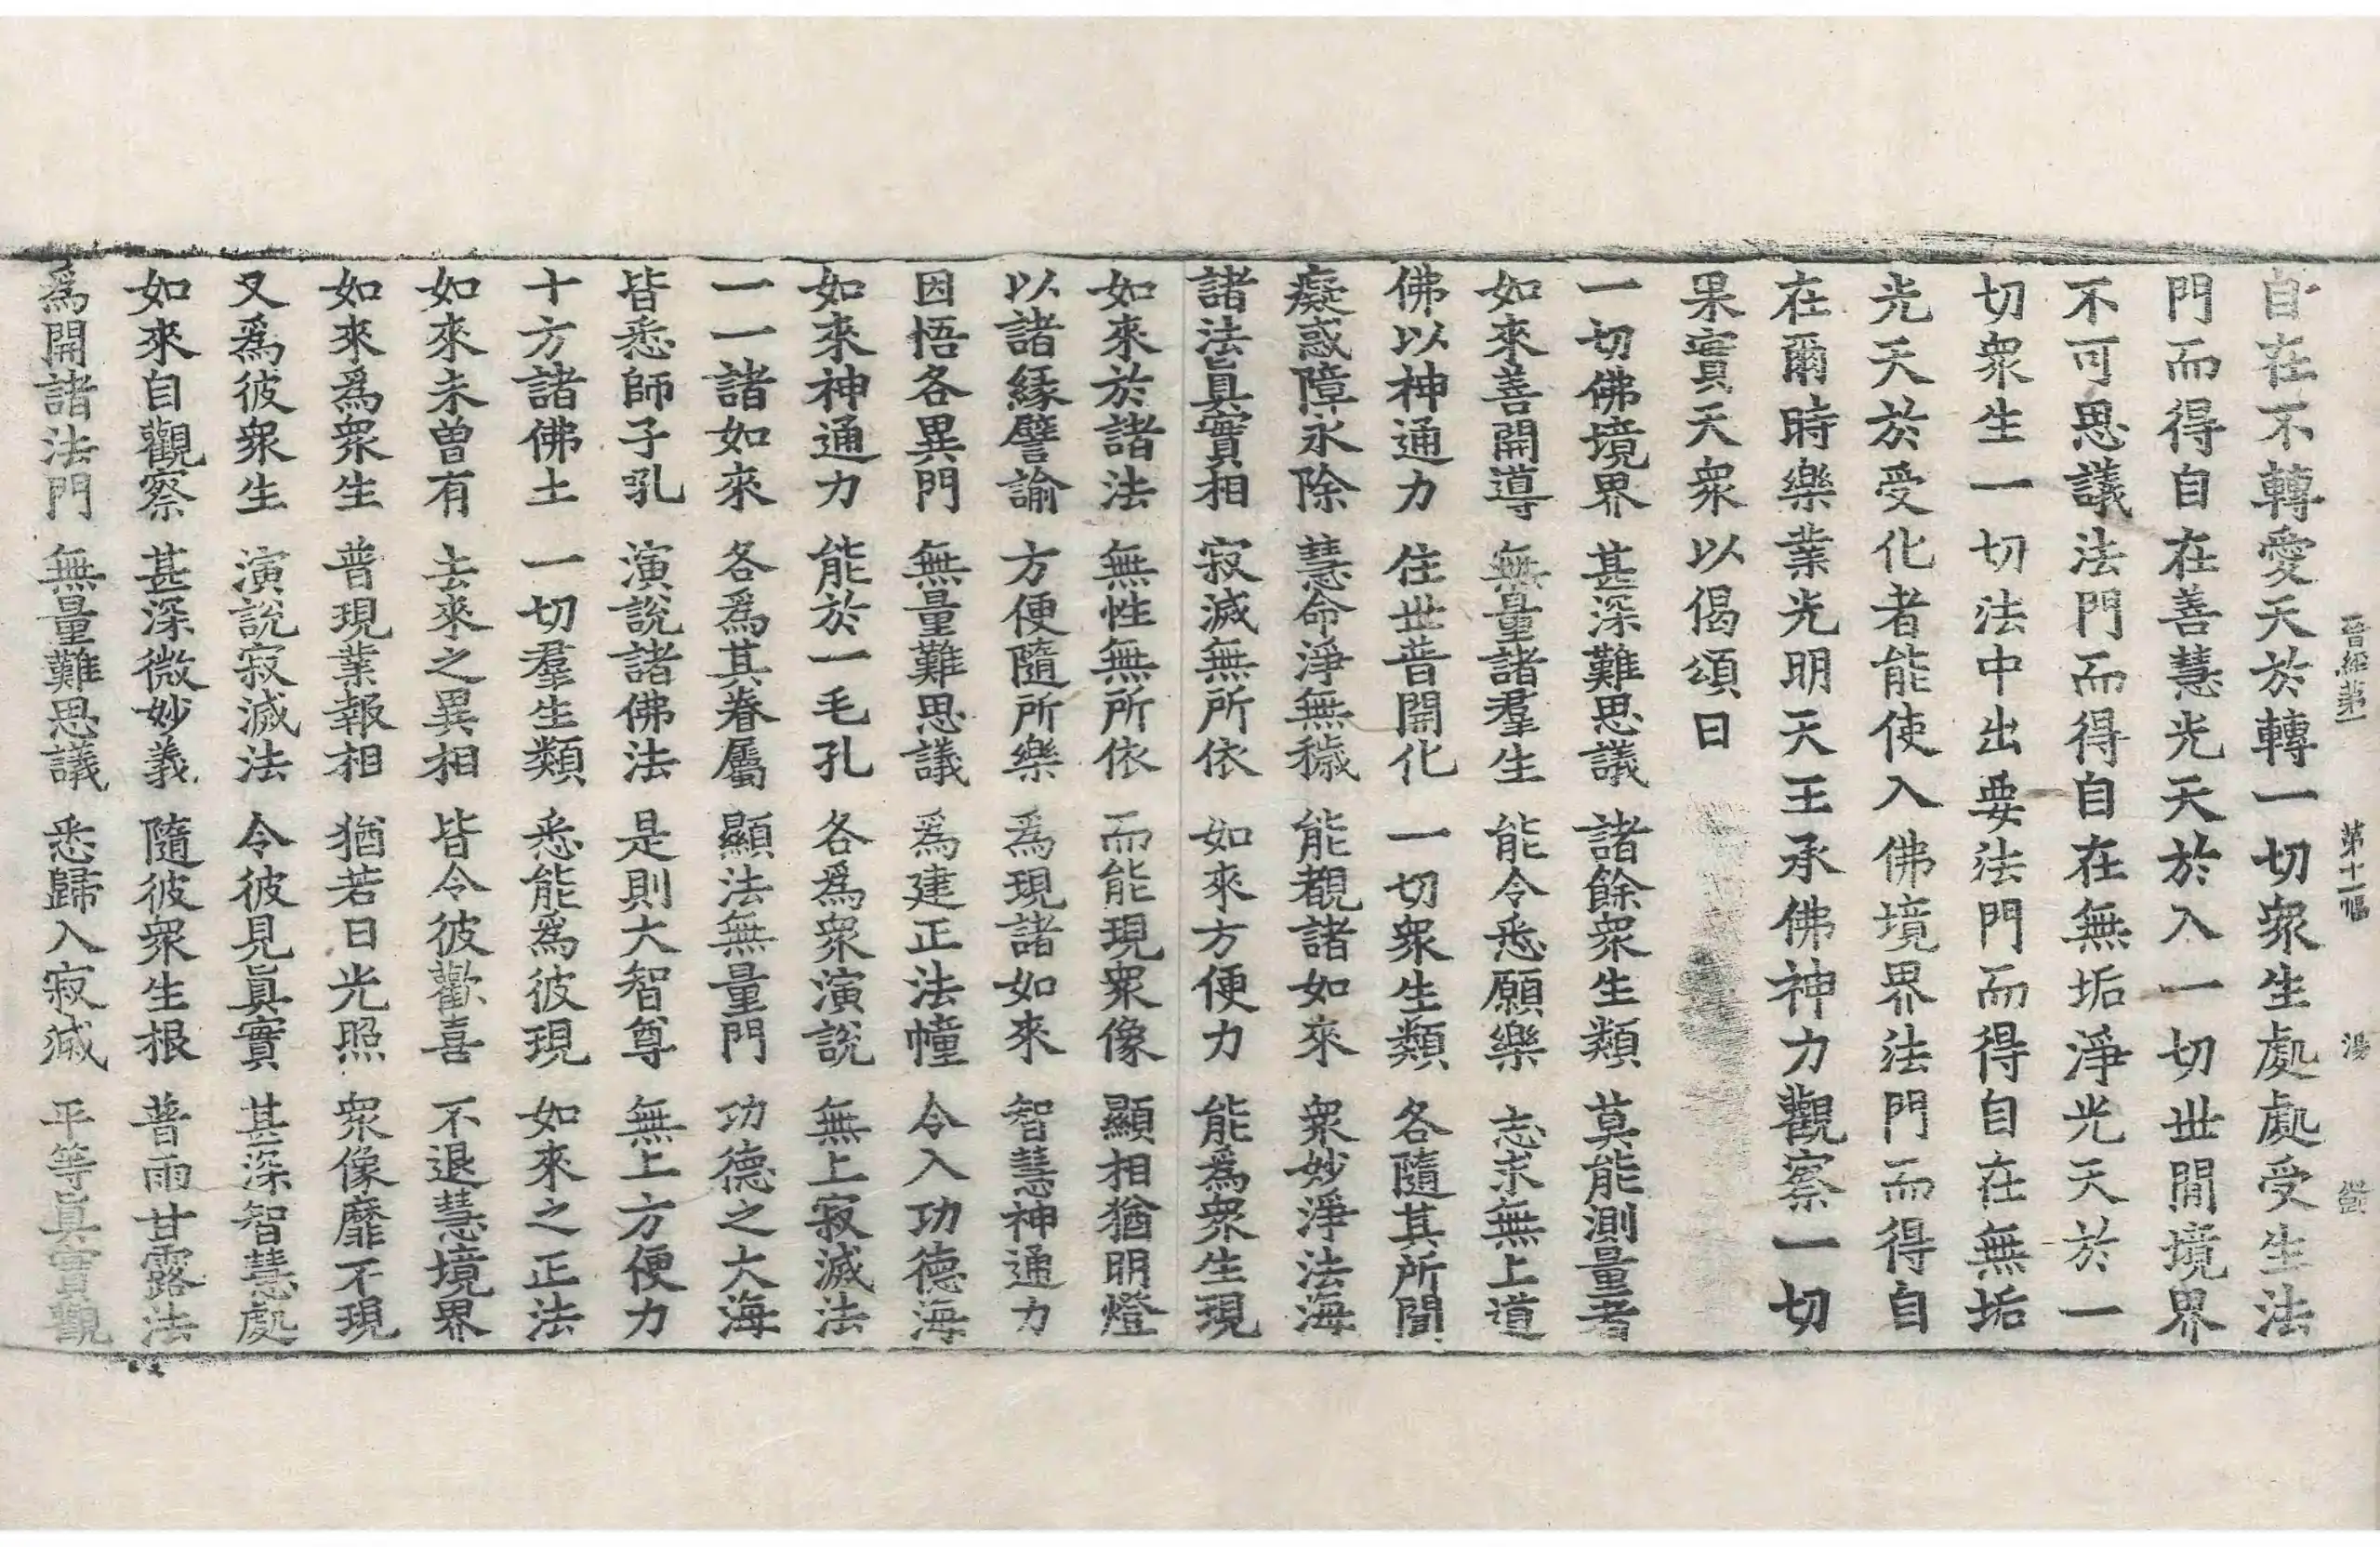 晉經第一 第十一幅 湯
自在不轉愛天於轉一切衆生處處受生法
門而得自在善慧光天於入一切世閒境界
不可思議法門而得自在無垢淨光天於一
切衆生一切法中出要法門而得自在無垢
光天於受化者能使入佛境界法門而得自
在爾時樂業光明天王承佛神力觀察一切
果實天衆以偈頌曰
一切佛境界 甚深難思議 諸餘衆生類 莫能測量者
如來善開導 無量諸羣生 能令悉願樂 志求無上道
佛以神通力 住世普開化 一切衆生類 各隨其所聞
癡惑障永除 慧命淨無穢 能覩諸如來 衆妙淨法海
諸法眞實相 寂滅無所依 如來方便力 能爲衆生現
如來於諸法 無性無所依 而能現衆像 顯相猶明燈
以諸緣譬諭 方便隨所樂 爲現諸如來 智慧神通力
因悟各異門 無量難思議 爲建正法幢 令入功德海
如來神通力 能於一毛孔 各爲衆演說 無上寂滅法
一一諸如來 各爲其眷屬 顯法無量門 功德之大海
皆悉師子吼 演說諸佛法 是則大智尊 無上方便力
十方諸佛土 一切羣生類 悉能爲彼現 如來之正法
如來未曾有 去來之異相 皆令彼歡喜 不退慧境界
如來爲衆生 普現業報相 猶若日光照 衆像靡不現
又爲彼衆生 演說寂滅法 令彼見眞實 甚深智慧處
如來自觀察 甚深微妙義 隨彼衆生根 普雨甘露法
爲開諸法門 無量難思議 悉歸入寂滅 平等眞實觀